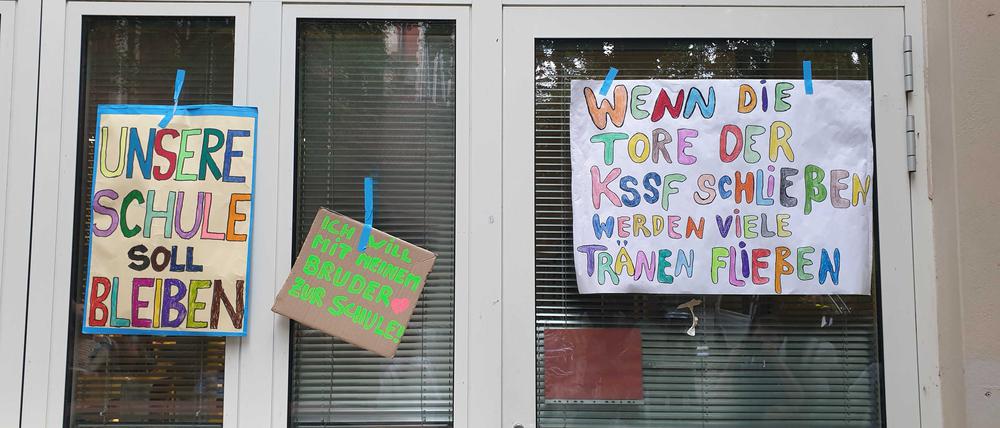 UNSERE
SCHULE
SOLL
BLEIBEN
ICH WILL
MIT MEINEM
BRUDER
ZUR SCHULE!
WENN DIE
TORE DER
KSSF SCHLIEẞEN
WERDEN VIELE
TRÄNEN FLIEẞEN